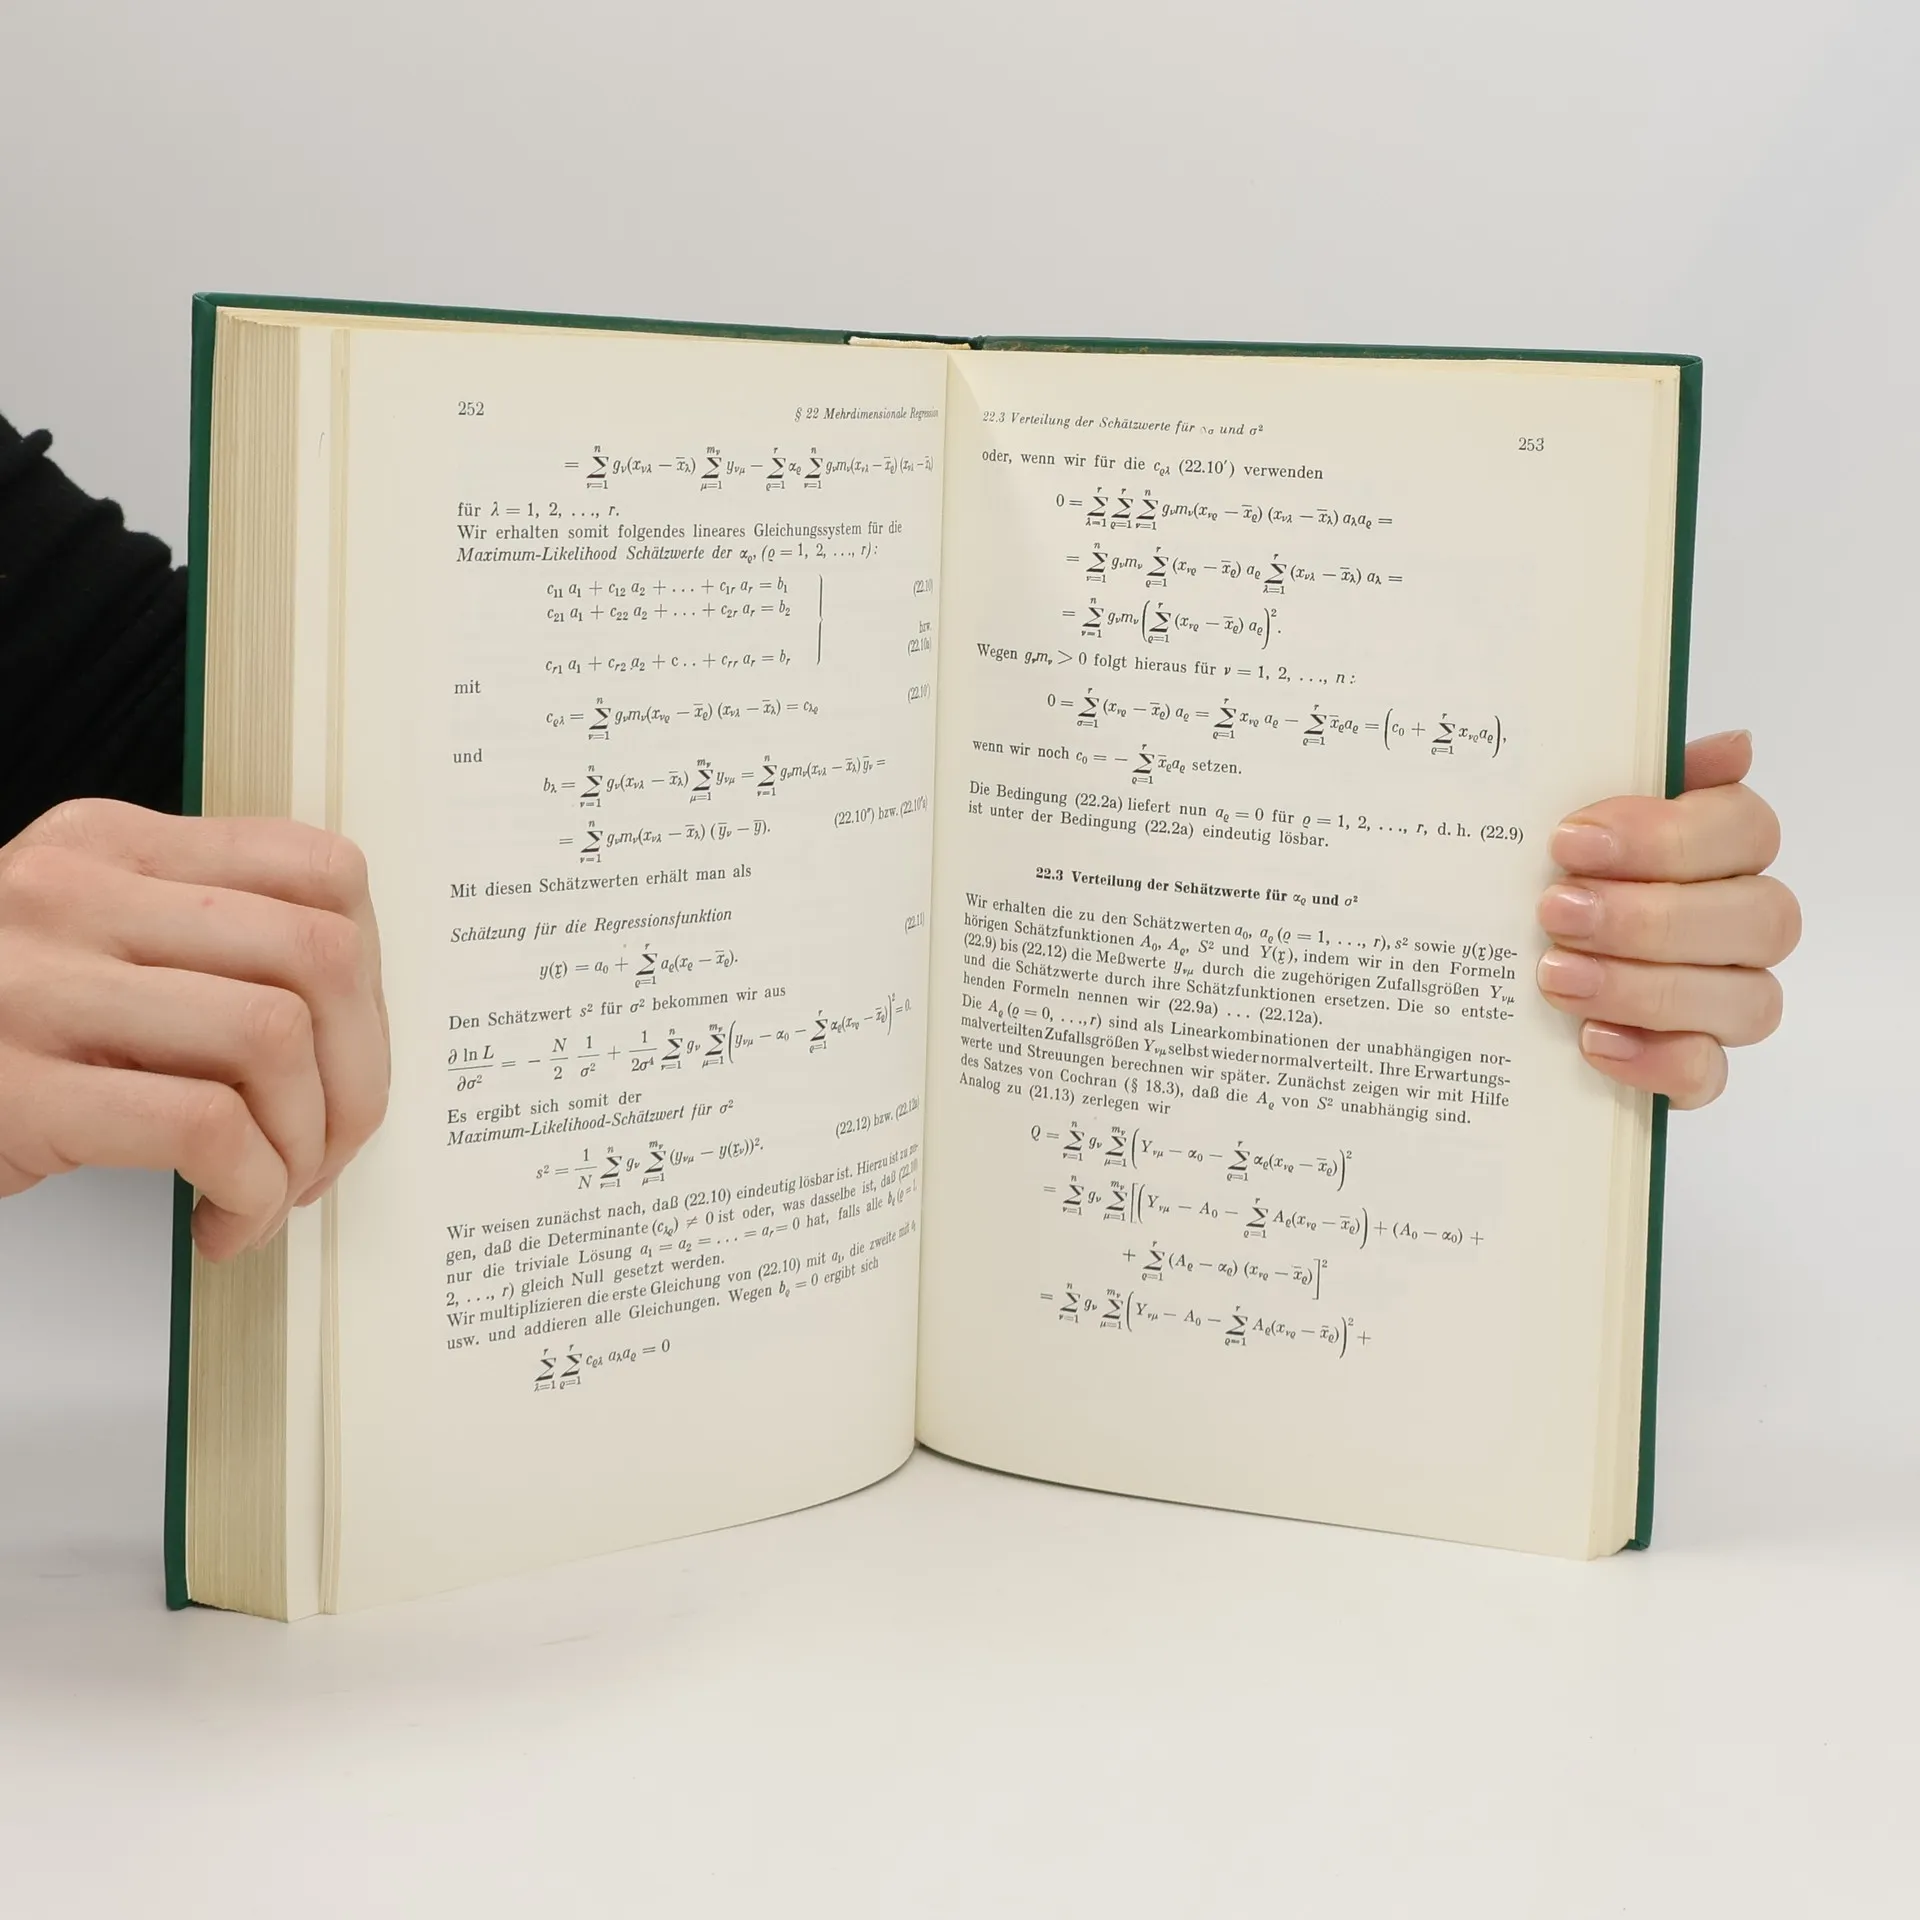 252
§ 22 Mehrdimensionale Regression
= ∑_{ν=1}^{n} g_ν(x_{νλ} − x̄_λ) ∑_{μ=1}^{m_ν} y_{νμ} − ∑_{ϱ=1}^{r} α_ϱ ∑_{ν=1}^{n} g_ν m_ν(x_{νϱ} − x̄_ϱ) (x_{νλ} − x̄_λ)
für λ = 1, 2, ..., r.
Wir erhalten somit folgendes lineares Gleichungssystem für die
Maximum-Likelihood Schätzwerte der α_ϱ, (ϱ = 1, 2, ..., r):
c₁₁ a₁ + c₁₂ a₂ + ... + c₁ᵣ aᵣ = b₁ (22.10)
c₂₁ a₁ + c₂₂ a₂ + ... + c₂ᵣ aᵣ = b₂
bzw.
(22.10a)
cᵣ₁ a₁ + cᵣ₂ a₂ + c . . + cᵣᵣ aᵣ = bᵣ
mit
c_{ϱλ} = ∑_{ν=1}^{n} g_ν m_ν(x_{νϱ} − x̄_ϱ) (x_{νλ} − x̄_λ) = c_{λϱ} (22.10′)
und
b_λ = ∑_{ν=1}^{n} g_ν(x_{νλ} − x̄_λ) ∑_{μ=1}^{m_ν} y_{νμ} = ∑_{ν=1}^{n} g_ν m_ν(x_{νλ} − x̄_λ) ȳ_ν =
= ∑_{ν=1}^{n} g_ν m_ν(x_{νλ} − x̄_λ) (ȳ_ν − ȳ). (22.10″) bzw. (22.10″a)
Mit diesen Schätzwerten erhält man als
Schätzung für die Regressionsfunktion (22.11)
y(𝔵) = a₀ + ∑_{ϱ=1}^{r} a_ϱ(x_ϱ − x̄_ϱ).
Den Schätzwert s² für σ² bekommen wir aus
∂ ln L / ∂σ² = − N/2 1/σ² + 1/2σ⁴ ∑_{ν=1}^{n} g_ν ∑_{μ=1}^{m_ν} (y_{νμ} − α₀ − ∑_{ϱ=1}^{r} α_ϱ(x_{νϱ} − x̄_ϱ))² = 0.
Es ergibt sich somit der
Maximum-Likelihood-Schätzwert für σ²
s² = 1/N ∑_{ν=1}^{n} g_ν ∑_{μ=1}^{m_ν} (y_{νμ} − y(𝔵_ν))². (22.12) bzw. (22.12a)
Wir weisen zunächst nach, daß (22.10) eindeutig lösbar ist. Hierzu ist zu zei-
gen, daß die Determinante (c_{λϱ}) ≠ 0 ist oder, was dasselbe ist, daß (22.10)
nur die triviale Lösung a₁ = a₂ = ... = aᵣ = 0 hat, falls alle b_ϱ (ϱ = 1,
2, ..., r) gleich Null gesetzt werden.
Wir multiplizieren die erste Gleichung von (22.10) mit a₁, die zweite mit a₂
usw. und addieren alle Gleichungen. Wegen b_ϱ = 0 ergibt sich
∑_{λ=1}^{r} ∑_{ϱ=1}^{r} c_{ϱλ} a_λ a_ϱ = 0
22.3 Verteilung der Schätzwerte für und σ²
253
oder, wenn wir für die c_{ϱλ} (22.10′) verwenden
0 = ∑_{λ=1}^{r} ∑_{ϱ=1}^{r} ∑_{ν=1}^{n} g_ν m_ν(x_{νϱ} − x̄_ϱ) (x_{νλ} − x̄_λ) a_λ a_ϱ =
= ∑_{ν=1}^{n} g_ν m_ν ∑_{ϱ=1}^{r} (x_{νϱ} − x̄_ϱ) a_ϱ ∑_{λ=1}^{r} (x_{νλ} − x̄_λ) a_λ =
= ∑_{ν=1}^{n} g_ν m_ν (∑_{ϱ=1}^{r} (x_{νϱ} − x̄_ϱ) a_ϱ)².
Wegen g_ν m_ν > 0 folgt hieraus für ν = 1, 2, ..., n:
0 = ∑_{σ=1}^{r} (x_{νϱ} − x̄_ϱ) a_ϱ = ∑_{ϱ=1}^{r} x_{νϱ} a_ϱ − ∑_{ϱ=1}^{r} x̄_ϱ a_ϱ = (c₀ + ∑_{ϱ=1}^{r} x_{νϱ} a_ϱ),
wenn wir noch c₀ = − ∑_{ϱ=1}^{r} x̄_ϱ a_ϱ setzen.
Die Bedingung (22.2a) liefert nun a_ϱ = 0 für ϱ = 1, 2, ..., r, d. h. (22.9)
ist unter der Bedingung (22.2a) eindeutig lösbar.
22.3 Verteilung der Schätzwerte für α_ϱ und σ²
Wir erhalten die zu den Schätzwerten a₀, a_ϱ (ϱ = 1, ..., r), s² sowie y(𝔵)ge-
hörigen Schätzfunktionen A₀, A_ϱ, S² und Y(𝔵), indem wir in den Formeln
(22.9) bis (22.12) die Meßwerte y_{νμ} durch die zugehörigen Zufallsgrößen Y_{νμ}
und die Schätzwerte durch ihre Schätzfunktionen ersetzen. Die so entste-
henden Formeln nennen wir (22.9a) ... (22.12a).
Die A_ϱ (ϱ = 0, ..., r) sind als Linearkombinationen der unabhängigen nor-
malverteilten Zufallsgrößen Y_{νμ} selbst wieder normalverteilt. Ihre Erwartungs-
werte und Streuungen berechnen wir später. Zunächst zeigen wir mit Hilfe
des Satzes von Cochran (§ 18.3), daß die A_ϱ von S² unabhängig sind.
Analog zu (21.13) zerlegen wir
Q = ∑_{ν=1}^{n} g_ν ∑_{μ=1}^{m_ν} (Y_{νμ} − α₀ − ∑_{ϱ=1}^{r} α_ϱ(x_{νϱ} − x̄_ϱ))²
= ∑_{ν=1}^{n} g_ν ∑_{μ=1}^{m_ν} [(Y_{νμ} − A₀ − ∑_{ϱ=1}^{r} A_ϱ(x_{νϱ} − x̄_ϱ)) + (A₀ − α₀) +
+ ∑_{ϱ=1}^{r} (A_ϱ − α_ϱ) (x_{νϱ} − x̄_ϱ)]²
= ∑_{ν=1}^{n} g_ν ∑_{μ=1}^{m_ν} (Y_{νμ} − A₀ − ∑_{ϱ=1}^{r} A_ϱ(x_{νϱ} − x̄_ϱ))² +